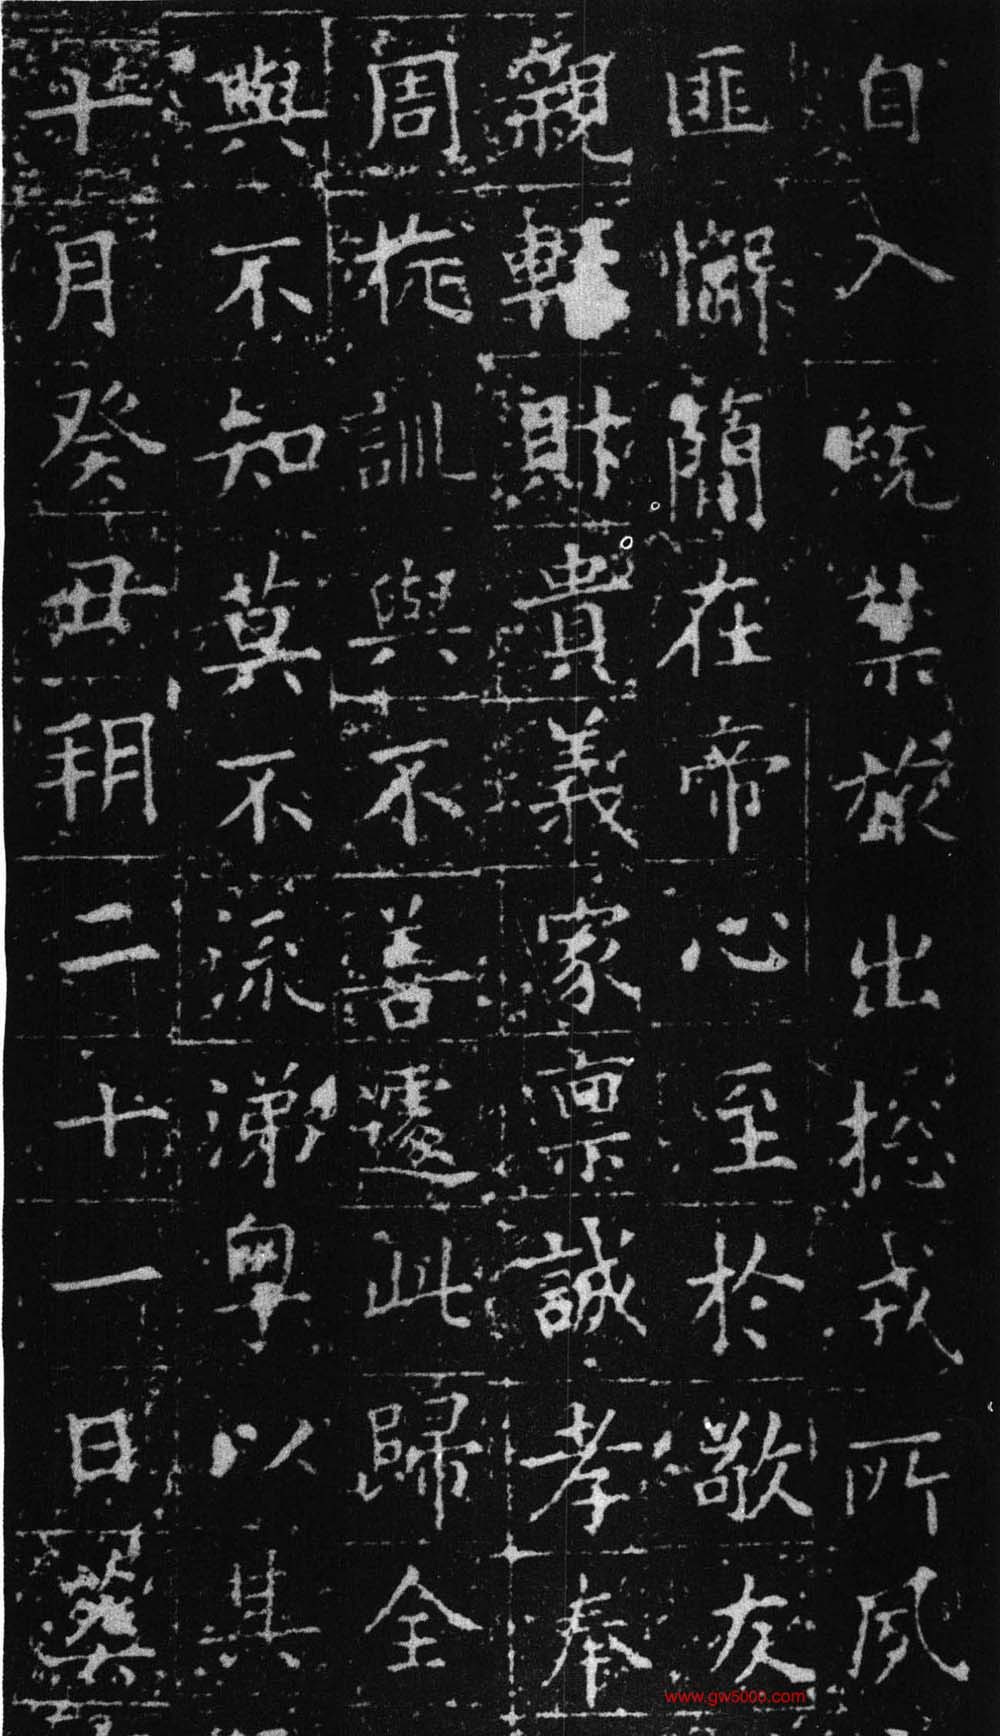 自入統禁旅出揔戎所夙
匪懈簡在帝心至於敬友
親輕財貴義家禀誠孝奉
周旋訓與不善遽此歸全
與不知莫不流涕粤以其
十月癸丑朔二十一日葬
www.gw5000.com